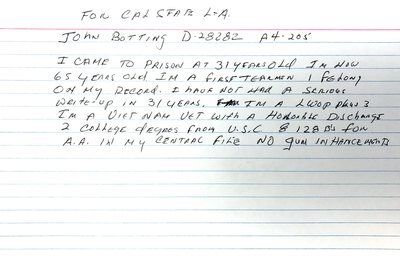 FOR CAL STATE L.A.
JOHN BOTTING D-28282 A4-205
I CAME TO PRISON AT 31 YEARS OLD IM NOW
65 YEARS OLD IM A FIRST TEARMEN 1 FELONY
ON MY RECORD. I HAVE NOT HAD A SERIOUS
WRITE-UP IN 31 YEARS. I'M A LWOP PLUS 3
I'M A VIET NAM VET WITH A HONORABLE DISCHARGE
2 COLLEGE DEGREES FROM U.S.C & 128 D'S FOR
A.A. IN MY CENTRAL FILE NO GUN INHANCEMENTS